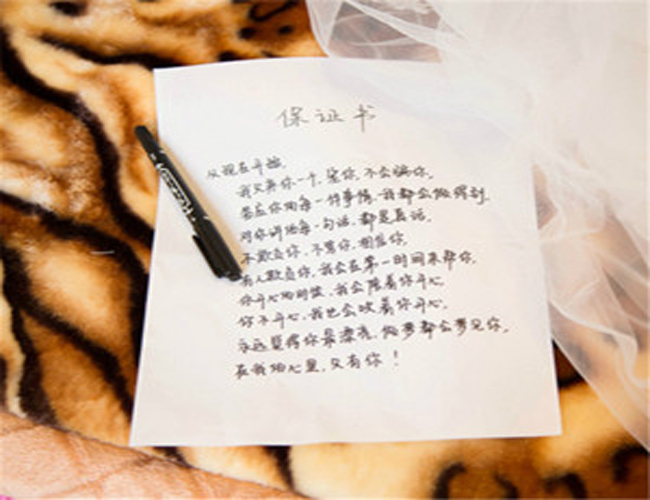 保证书
从现在开始,
我只疼你一个,宠你,不会骗你,
答应你的每一件事情,我都会做得到,
对你讲的每一句话,都是真话,
不欺负你,不骂你,相信你,
有人欺负你,我会在第一时间来帮你,
你开心的时候,我会陪着你开心,
你不开心,我也会哄着你开心,
永远觉得你最漂亮,做梦都会梦见你,
在我的心里,只有你!